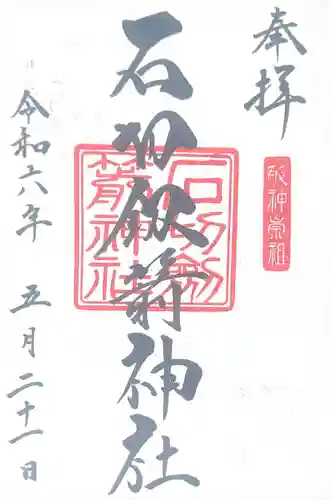 奉拝
敬神崇祖
石切劔箭神社
石切劔箭神社
令和六年 五月二十一日